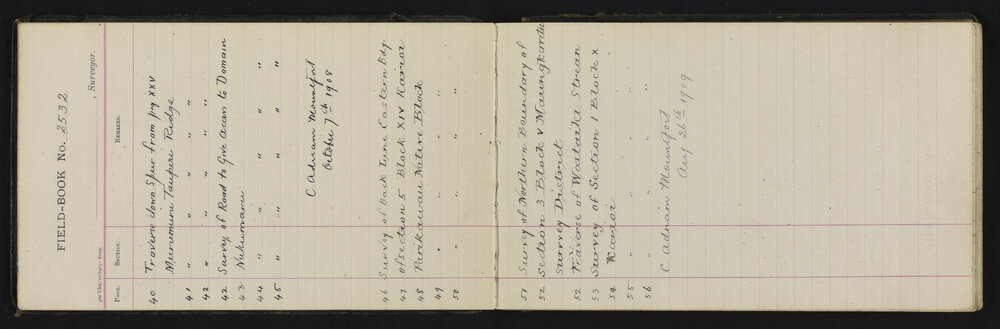 FIELD-BOOK No. 2532
, Surveyor.
PAGE. SECTION. REMARKS.
40 Traverse down Spur from pg XXV
Murumuru Taupiri Ridge
41 " " "
42 " " "
42 Survey of Road to Give access to Domain
43 Nukumaru
44 " " " " "
45 " " " " "
C. Adnam Mountfort
October 7th 1908
46 Survey of Back Line Eastern Bdy
47 of section 5 Block XIV Karioi
48 Parikawau Native Block
49 " " " "
50 " " " "
51 Survey of Northern Boundary of
52 Section 3 Block V
Survey District
52 Traverse of Waitaika Stream
53 Survey of Section 1 Block X
54 Karioi
55 " " "
56 " " "
C Adnam Mountfort
Aug 26th 1909